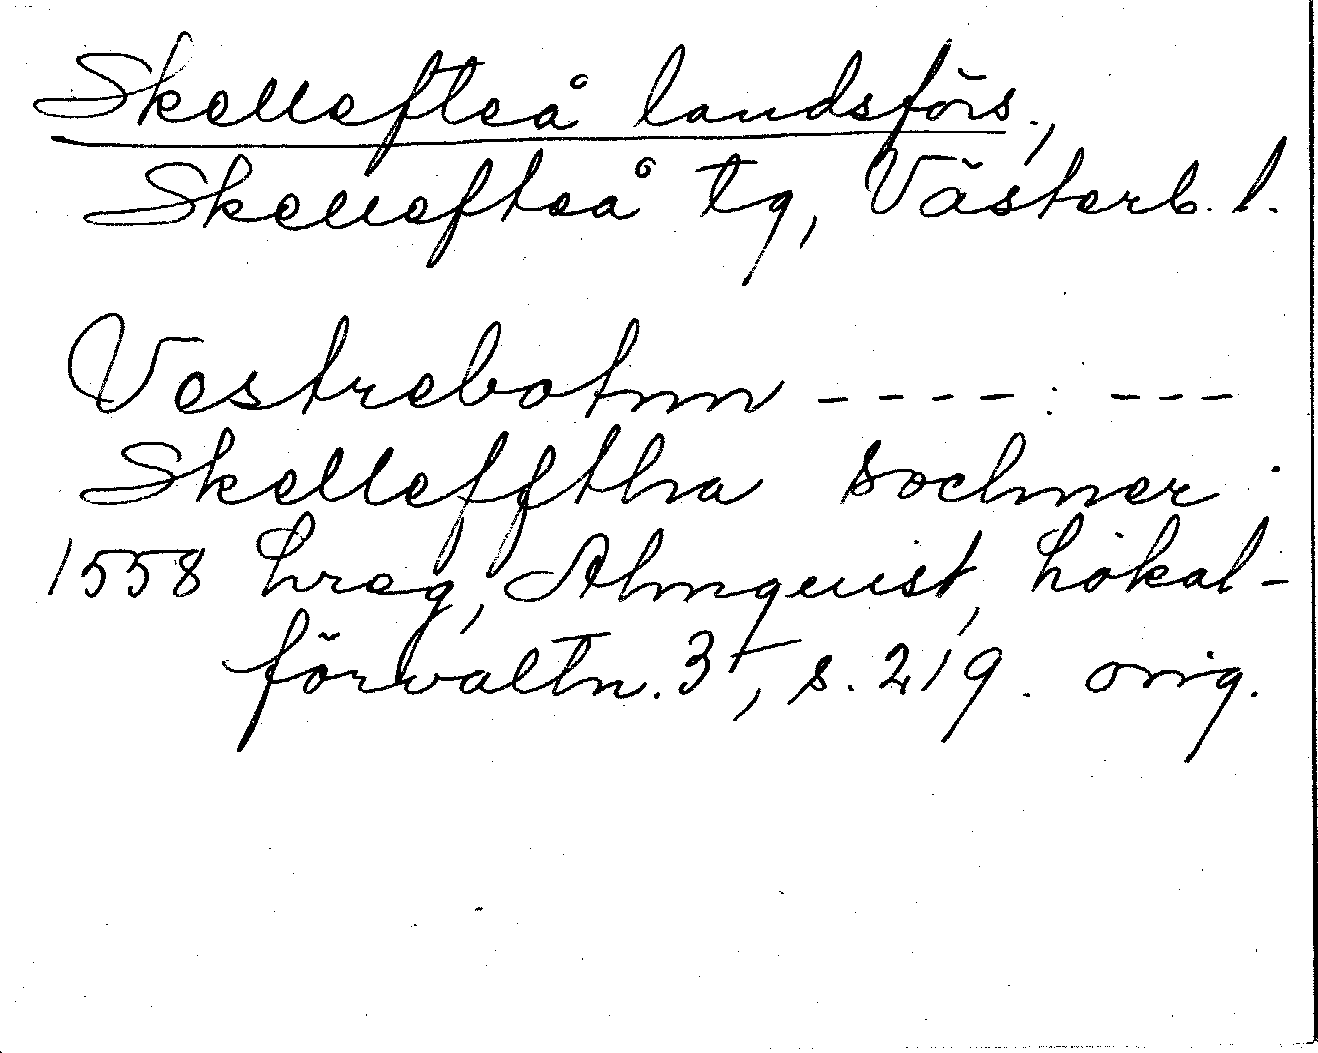 Skellefteå landsförs.,
Skellefteå tg, Västerb. l.
Vestrebotnn ----: ---
Skellefftha sochner
1558 Lreg, Almquist, Lokal-
förvaltn. 3, s. 219. orig.